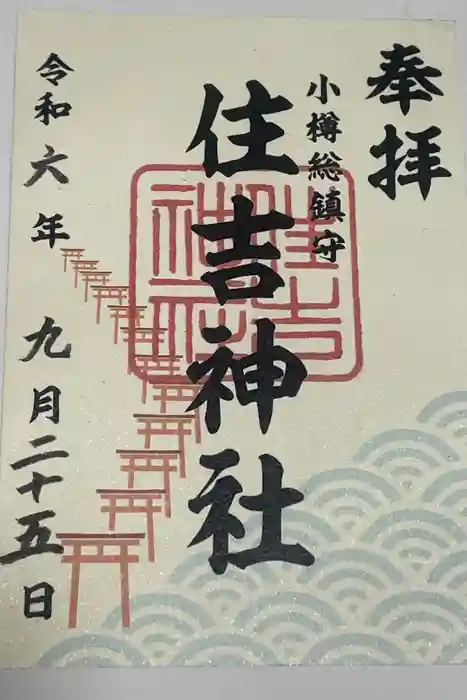 奉拝
小樽総鎮守
住吉神社
住吉神社
令和六年 九月二十五日